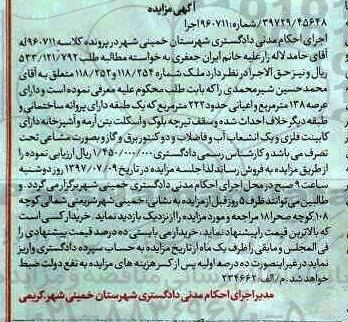 آگهی مزایده
۳۹۷۲۹/۴۵۶۴۸/شماره:۹۶۰۷۱۱اجرا
اجرای احکام مدنی دادگستری شهرستان خمینی شهر در پرونده کلاسه ۹۶۰۷۱۱له
آقای حامد لاله زار علیه خانم ایران جعفری به خواسته مطالبه طلب ۵۳۳/۱۲۱/۷۹۲
ریال و نیز حق الاجرا در نظر دارد ملک شماره ۱۱۸/۲۵۴ و ۱۱۸/۲۵۲ متعلق به آقای
محمد حسین شیر محمدی را که بابت طلب محکوم علیه معرفی نموده است و دارای
عرصه ۱۳۸ مترمربع و اعیانی حدود ۲۲۲ مترمربع که یک طبقه دارای پروانه ساختمانی و
طبقه دیگر خلاف احداث شده و سقف تیرچه بلوک و اسکلت بتن آرمه و آشپزخانه دارای
کابینت فلزی و یک انشعاب آب و فاضلاب و دو کنتور برق و گاز و بصورت مشاعی تحت
تصرف می باشد و کارشناس رسمی دادگستری ۱/۴۵۰/۰۰۰/۰۰۰ ریال ارزیابی نموده را
از طریق مزایده به فروش رساند لذا جلسه مزایده در تاریخ ۱۳۹۷/۰۷/۰۹ روز دوشنبه
ساعت ۹ صبح در محل اجرای احکام مدنی دادگستری خمینی شهر برگزار می گردد و
طالبین می توانند ظرف ۵ روز قبل از مزایده به نشانی: خمینی شهر شریعتی شمالی کوچه
۱۰۸ کوچه صحرا ۱۸ مراجعه و مورد مزایده را از نزدیک بازدید نمایند. خریدار کسی است
که بالاترین قیمت را پیشنهاد نماید، خریدار می بایستی ده درصد قیمت پیشنهادی را
فی المجلس و مابقی را ظرف یک ماه از تاریخ مزایده به حساب سپرده دادگستری واریز
نماید در غیر اینصورت ده درصد اولیه پس از کسر هزینه های مزایده به نفع دولت ضبط
خواهد شد. م/الف: ۲۳۴۶۶۲
مدیر اجرای احکام مدنی دادگستری شهرستان خمینی شهر - کریمی